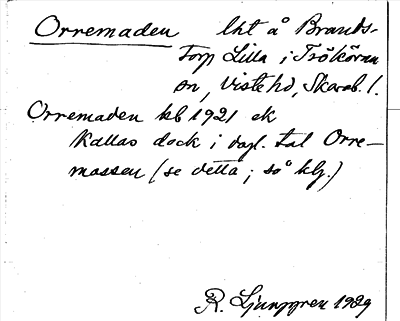 Orremaden lht å Brands-
torp Lilla i Trökörna
sn, Viste hd, Skarab. l.
Orremaden kb 1921 ek
Kallas dock i dagl. tal Orre-
massen (se detta; så klg.)
R. Ljunggren 1929